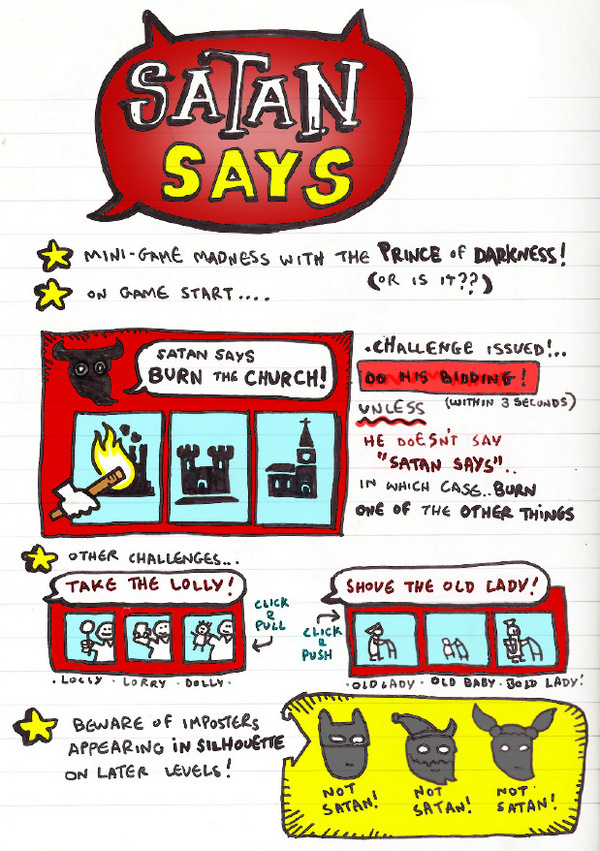 SATAN
SAYS
MINI-GAME MADNESS WITH THE PRINCE OF DARKNESS!
(OR IS IT??)
ON GAME START....
SATAN SAYS
BURN THE CHURCH!
.CHALLENGE ISSUED!..
DO HIS BIDDING!
UNLESS (WITHIN 3 SECONDS)
HE DOESN'T SAY
"SATAN SAYS"..
IN WHICH CASE..BURN
ONE OF THE OTHER THINGS
OTHER CHALLENGES...
TAKE THE LOLLY!
CLICK
& PULL
.LOLLY . LORRY . DOLLY.
SHOVE THE OLD LADY!
CLICK
& PUSH
.OLD LADY . OLD BABY. BOLD LADY!
BEWARE OF IMPOSTERS
APPEARING IN SILHOUETTE
ON LATER LEVELS!
NOT
SATAN!
NOT
SATAN!
NOT
SATAN!